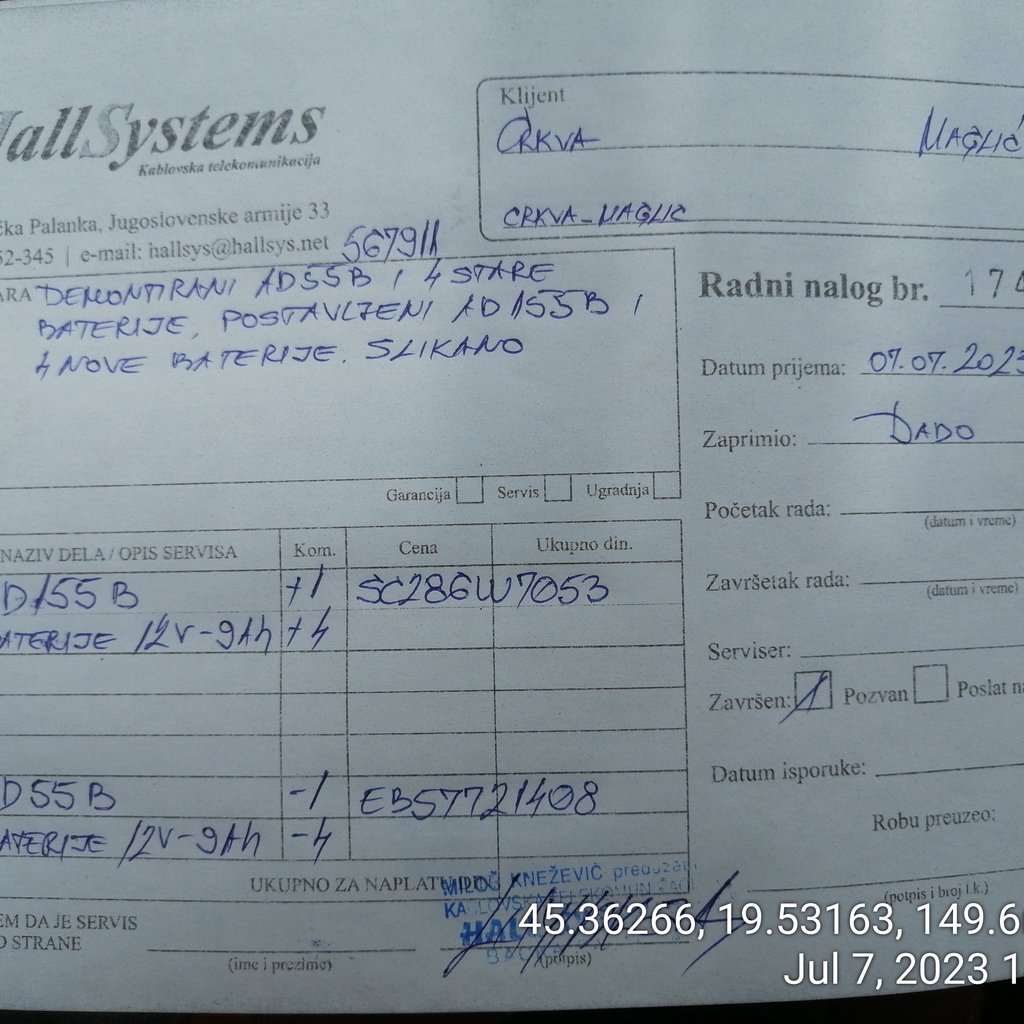 HallSystems
Kablovska telekomunikacija
čka Palanka, Jugoslovenske armije 33
52-345 | e-mail: hallsys@hallsys.net
Klijent
CRKVA MAGLIĆ
CRKVA-MAGLIĆ
5679/1
ARA DEMONTIRANI AD55B I 4 STARE
BATERIJE, POSTAVLJENI AD155B I
4 NOVE BATERIJE. SLIKANO
Garancija Servis Ugradnja
Radni nalog br. 174
Datum prijema: 07.07.2023
Zaprimio: DADO
Početak rada:
(datum i vreme)
Završetak rada:
(datum i vreme)
Serviser:
Završen: Pozvan Poslat na
Datum isporuke:
Robu preuzeo:
(potpis i broj l.k.)
NAZIV DELA / OPIS SERVISA Kom. Cena Ukupno din.
D155B +1 SC286W7053
ATERIJE 12V-9Ah +4
D55B -1 EB5T721408
ATERIJE 12V-9Ah -4
UKUPNO ZA NAPLATU
MILOŠ KNEŽEVIĆ preduzet
KABLOVSKA TELEKOMUNIKAC
HAL
BAČKA
EM DA JE SERVIS
O STRANE
(ime i prezime)
(potpis)
45.36266, 19.53163, 149.6
Jul 7, 2023 1